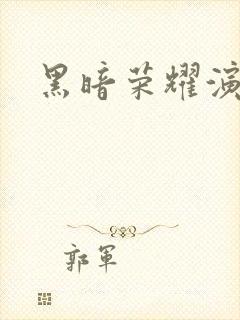 黑暗荣耀演
郭军